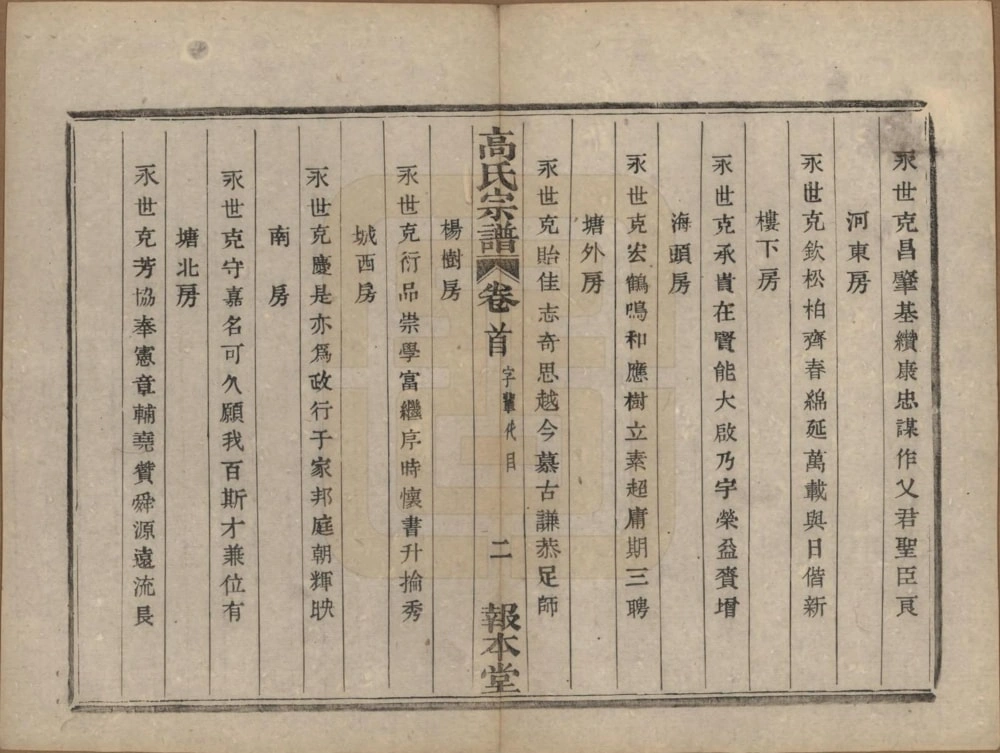 永世克昌肇基纘康忠謀作乂君聖臣良
河東房
永世克欽松柏齊春綿延萬載與日偕新
樓下房
永世克承貴在賢能大啟乃宇榮益賡增
海頭房
永世克宏鶴鳴和應樹立素超庸期三聘
塘外房
永世克貽佳志奇思越今慕古謙恭足師
高氏宗譜 卷首 字輩代目 二 報本堂
楊樹房
永世克衍品崇學富繼序時懷書升掄秀
城西房
永世克慶是亦爲政行于家邦庭朝輝映
南房
永世克守嘉名可久願我百斯才兼位有
塘北房
永世克芳協奉憲章輔堯贊舜源遠流長